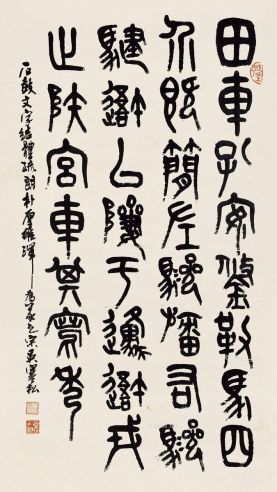 田車孔安鋚勒馬四
介既簡左驂旛右驂
騝避以隮于邍避戎
止陕宮車其寫秀
石鼓文字結體疏朗朴厚雄渾